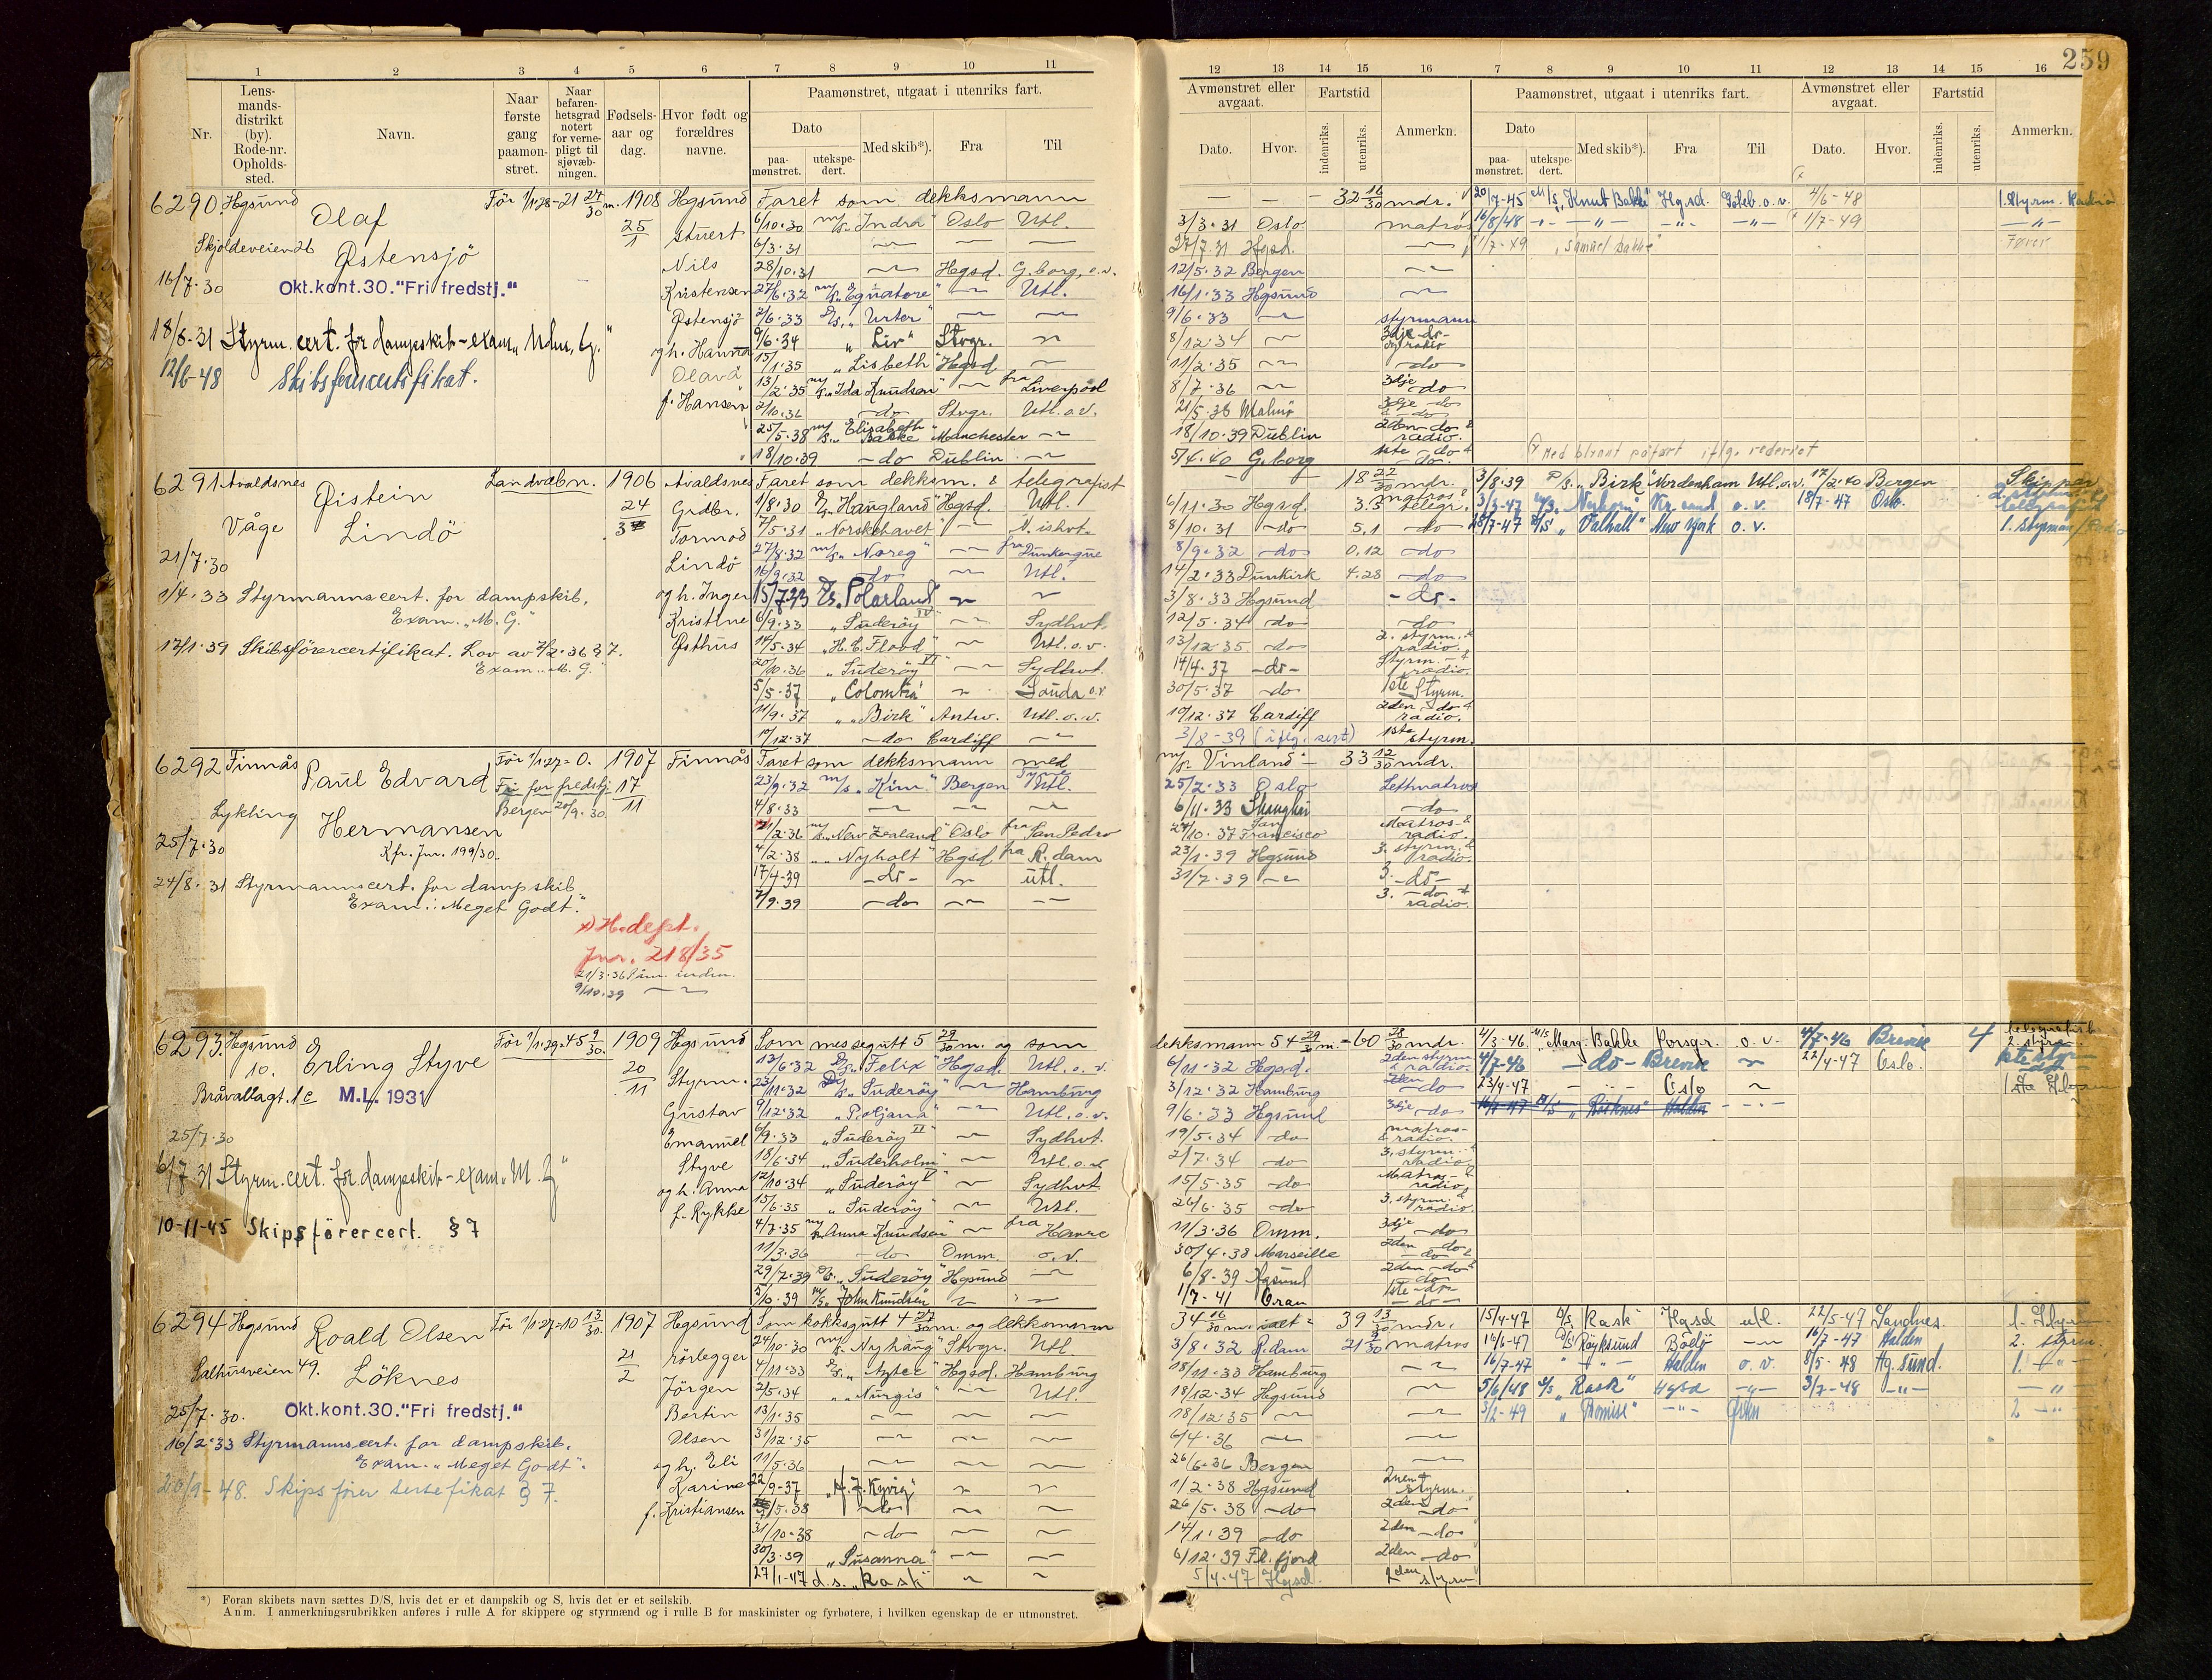 259
1 2 3 4 5 6 7 8 9 10 11
Nr.
Lens-
mands-
distrikt
(by).
Rode-nr.
Opholds-
sted.
Navn.
Naar
første
gang
paamøn-
stret.
Naar
befaren-
hetsgrad
notert
for verne-
pligt til
sjøvæb-
ningen.
Fødsels-
aar og
dag.
Hvor født og
forældres
navne.
Paamønstret, utgaat i utenriks fart.
Dato
paa-
mønstret.
utekspe-
dert.
Med skib*).
Fra
Til
12 13 14 15 16 7 8 9 10 11 12 13 14 15 16
Avmønstret eller
avgaat.
Dato.
Hvor.
Fartstid
indenriks.
utenriks.
Anmerkn.
Paamønstret, utgaat i utenriks fart.
Dato
paa-
mønstret.
utekspe-
dert.
Med skib*).
Fra
Til
Avmønstret eller
avgaat.
Dato.
Hvor.
Fartstid
indenriks.
utenriks.
Anmerkn.
6290 Hgsund
Olaf
Østensjö
Skjoldeveien 26
16/7.30
Okt.kont.30."Fri fredstj."
18/8-31 Styrm. cert. for dampskib - exam.
12/6-48
För 1/1.28-21 27/30 m. 1908
25/1
Hgsund
stuert
Nils
Kristensen
Østensjö
og h. Hanna
Olava
f. Hansen
Faret som dekksmann
6/10.30 m/s. "Indra" Oslo Utl.
6/3.31
28/10.31 Hgsd. G.borg, o.v.
27/6.32 m/s. "Equatore" Utl.
2/6.33 "Urter"
9/6.34 "Liv" Stvgr.
15/1.35 "Lisbeth" Hgsd
13/2.35 m/s. "Ida Knudsen" fra Liverpool
2/10.36 do Stvgr. Utl. o.v.
25/5.38 m/s. "Elisabeth Bakke" Manchester
18/10.39 do Dublin
32 16/30 mdr.
3/3.31 Oslo matros
27/7.31 Hgsd.
12/5.32 Bergen
16/1.33 Hgsund
9/6.33 styrmann
8/12.34 3dje do
11/2.35 do
8/7.36 3dje do
21/5.38 Malmö 3dje do
18/10.39 Dublin 2den do & radio.
5/4.40 G.borg 1ste do
20/7-45 M/S "Knut Bakke" Hgsd. Göteb. o.v. 4/6-48 1. Styrm. Radio
16/8/48 1/7-49
1/7-49 "Samuel Bakke" Fører
Med blyant påført iflg. rederiet
6291 Avaldsnes
Øistein
Lindö
Våge
21/7.30
1/4.33 Styrmannscert. for dampskib.
Exam. "M.G."
17/1.39 Skibsförercertifikat. Lov av 7/2.36 § 7.
Exam. "M.G."
Landvæbn. 1906
24/3
Avaldsnes
Grdbr.
Tormod
Lindö
og h. Inger
Kristine
Østhus
Faret som dekksm. & telegrapist
1/8.30 "Haugland" Hgsd. Utl.
7/5.31 "Norskehavet" N. ishvt.
27/8.32 m/s. "Noreg" fra Dunkerque
16/9.32 do Utl.
15/7.33 "Polarland"
6/9.33 "Suderöy IV" Sydhvt.
14/5.34 "H.C. Flood" Utl. o.v.
20/10.36 "Suderöy VI" Sydhvt.
5/5.37 "Colombia" Sauda o.v.
11/9.37 "Birk" Antw. Utl. o.v.
19/12.37 do Cardiff
18 22/30 mdr.
6/11.30 Hgsd. 3.5 matros & telegr.
8/10.31 do 5.1 do
8/9.32 do 0.12 do
14/2.33 Dunkirk 4.28 do
3/8.33 Hgsund do
12/5.34 do do
13/12.35 do 2. styrm. & radio.
14/4.37 do Styrm. & radio.
30/5.37 do 1ste Styrm.
19/12.37 Cardiff 2den do & radio.
3/8-39 (iflg. sert) 1ste styrm.
3/8.39 D/S "Birk" Nordenham Utl. o.v. 17/2.40 Bergen Skipper
3/3-47 Kr.sand o.v. 18/7-47 Oslo. 2. styrm. & telegrafist
18/7-47 "Valhall" New York o.v. 1. styrman/Radio
6292 Finnås
Paul Edvard
Hermansen
Kfr. Jnr. 199/30.
Lykling
25/7.30
24/8.31 Styrmannscert. for dampskib
Exam.: Meget Godt."
x) H.dept.
Jnr. 218/35
21/3.36 Påm. inden.
9/10.39
För 1/1.27=0. 1907
Fri for fredstj.
Bergen 20/9.30.
17/11
Finnås
Faret som dekksmann med
23/9.32 m/s. "Kim" Bergen Utl.
4/8.33
21/2.36 "New Zealand" Oslo fra San Pedro
4/2.38 "Nyholt" Hgsd. fra R.dam
17/4-39 do utl.
7/9.39 do
m/s. Vinland - 33 12/30 mdr.
25/7.33 Oslo Lettmatros
6/11.33 Shanghai do
24/10.37 San Francisco Matros & radio.
23/1.39 Hgsund 3. styrm. & radio.
31/7.39 3. do
3. do & radio.
6293. Hgsund
10.
Bråvallagt. 1c
Erling Styve
M.L. 1931
25/7.30
6/7 31 Styrm. cert. for dampskib - exam. "M.G"
10-11-45 Skipsførercert. § 7
För 1/1.29=45 9/30. 1909
20/11
Hgsund
Styrm.
Gustav
Emanuel
Styve
og h. Anna
f. Rykke
Som messegutt 5 29/30 m. og som
13/6.32 "Felix" Hgsd. Utl. o.v.
23/11.32 "Suderöy" Hamburg
9/12.32 "Poljana" Utl. o.v.
6/9.33 "Suderöy VI" Sydhvt.
18/6.34 "Suderholm" Utl. o.v.
12/10.34 "Suderöy V" Sydhvt
15/6.35 "Suderöy" Utl.
4/7.35 "Anna Knudsen" fra Havre
11/3.36 do Dmm. o.v.
29/7.39 "Suderöy" Hgsund
5/10.39 m/s. "John Knudsen"
dekksmann 54 29/30 m. = 60 28/30 mdr.
6/11.32 Hgsd. 2den styrm & radio.
3/12.32 Hamburg 2den do
9/6.33 Hgsund 3dje do
19/5.34 do matros & radio.
2/7.34 do 3. styrm. & radio
15/5.35 do Matros & radio,
26/6.35 do 3. styrm. & radio.
11/3.36 Dmm. 3dje do
30/4.38 Marseille 2den do
6/8-39 Hgsund 2den do & do
1/7-41 Oran 1ste do
4/3-46. M/S "Marg. Bakke Porsgr. o.v. 4/7-46 Brevik 4 telegrafist 2. styrm.
4/7-46 do - Brevik 22/4-47 Oslo.
23/4-47 Oslo
"Røiknes" Halden
6294 Hgsund
Roald Olsen
Löknes
Salhusveien 49.
25/7.30.
Okt.kont.30."Fri fredstj."
16/2.33 Styrmannscert. for dampskib.
Exam. "Meget Godt".
20/9-48. Skipsfører sertefikat § 7.
För 1/1.27=10 13/30. 1907
21/2
Hgsund
rörlegger
Jörgen
Bertin
Olsen
og h. Eli
Karine
f. Kristiansen
Som kokksgutt 4 27/30 m. og dekksmann
24/10.30 m/s. "Nyhang" Stvgr. Utl.
4/11.33 "Aztec" Hgsd. Hamburg
2/5.34 "Nurgis" Utl.
13/1.35
31/12.35
11/5.36
22/9-37 "A.J. Kyvig"
5.38 do
31/10.38 do
30/3.39 "Susanna"
27/1-47 d.s. "Rask"
34 16/30 m. ialt = 39 13/30 mdr.
3/8.32 R.dam 21 9/30 matros
18/11.33 Hamburg
18/12.34 Hgsund
18/12.35
6/4.36
26/6.36 Bergen
1/2.38 Hgsund 2nen styrm.
26/5.38 do 2den do
14/1.39 do 2den do
6/12.39 Fl.fjord 2den do
5/4-47 Hgsd. 2den styrm
15/4-47 D/S Rask Hgsd utl. 22/5-47 Sandnes. 1. Styrm
16/6-47 Røyksund Bodö 16/7-47 Halden 2. styrm.
16/7-47 Halden o.v. 8/5-48 Hg.sund. 1.
5/6/48 "Rask" Hgsd 3/7-48
3/2-49 "Promise" 2
*) Foran skibets navn sættes D/S, hvis det er et dampskib og S, hvis det er et seilskib.
Anm. I anmerkningsrubrikken anføres i rulle A for skippere og styrmænd og i rulle B for maskinister og fyrbøtere, i hvilken egenskap de er utmønstret.